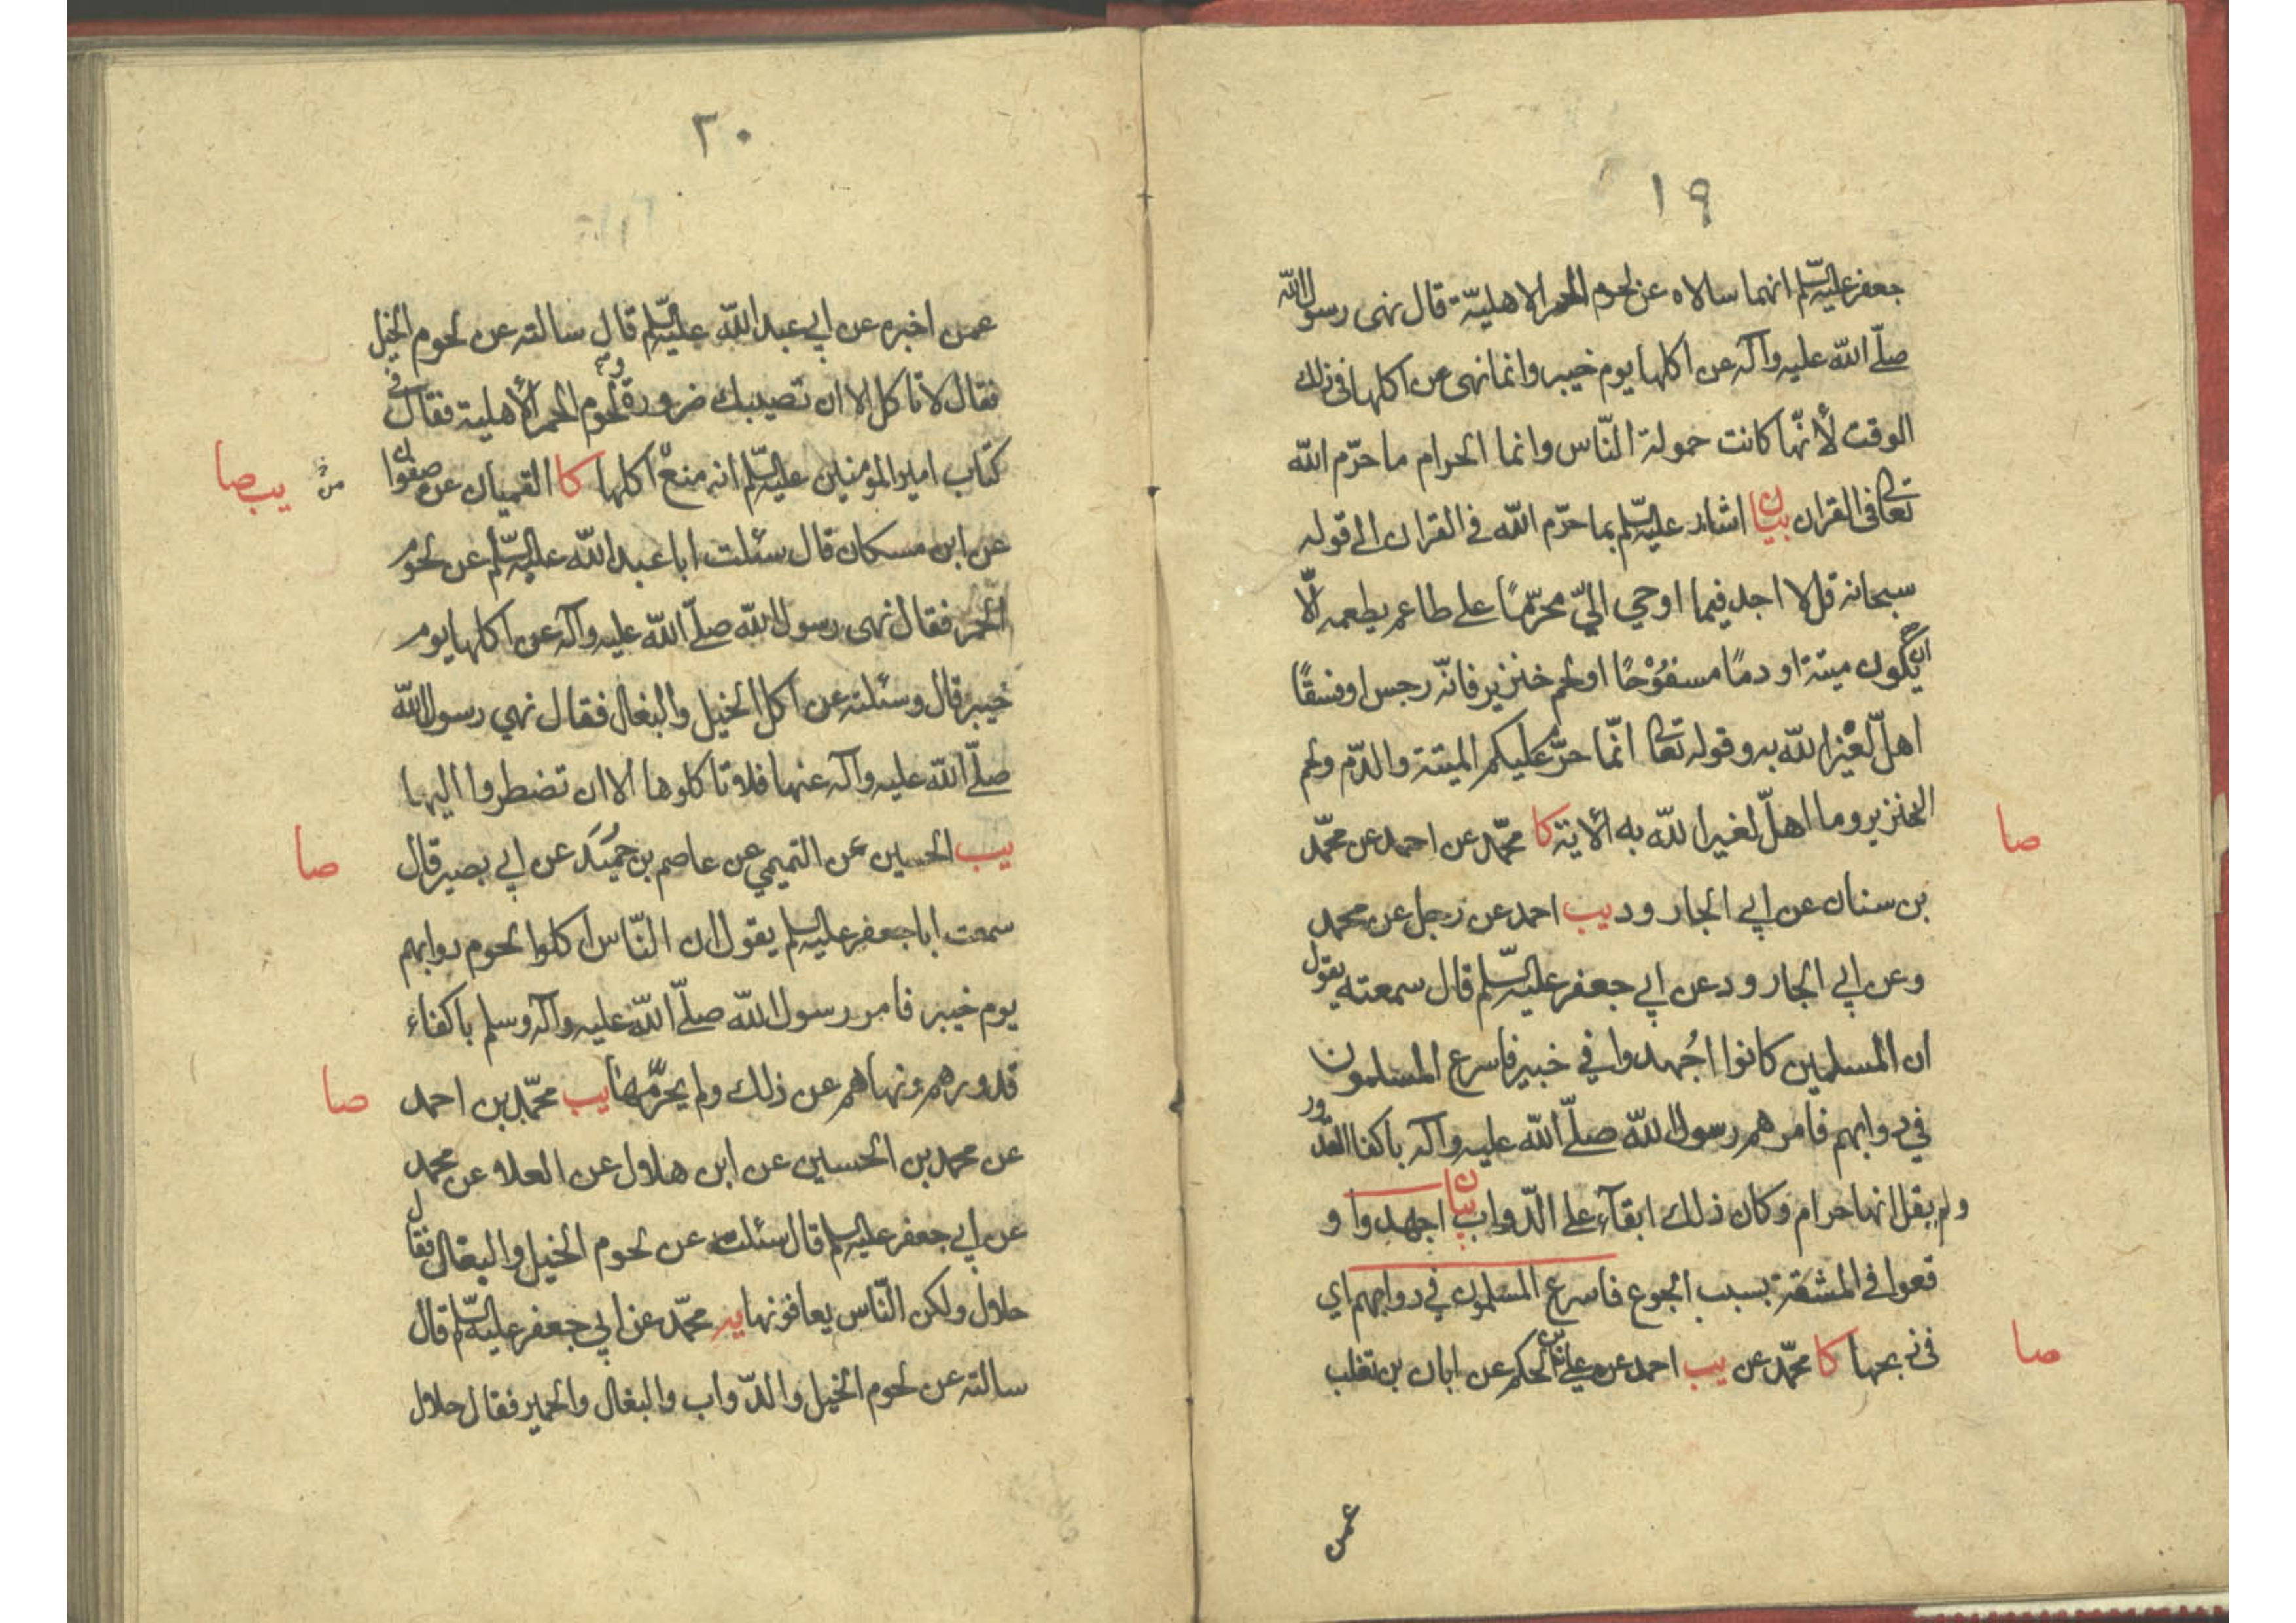 ١٩
جعفر عليه السّلم انهما سالاه عن لحوم الحمر الاهليّة قال نهى رسول الله
صلّى الله عليه وآله عن اكلها يوم خيبر وانما نهى عن اكلها فى ذلك
الوقت لأنّها كانت حمولة النّاس وانما الحرام ما حرّم الله
تعالى فى القران بيان اشار عليه السّلم بما حرّم الله في القران الى قوله
سبحانه قل لا اجد فيما اوحي اليّ محرّمًا على طاعم يطعمه الّا
ان يكون ميتة او دمًا مسفُوْحًا او لحم خنزير فانّه رجس او فسقًا
اهلّ لغيْر الله به وقوله تعالى انّما حرّم عليكم الميتة والدّم ولحم
الخنزير وما اهلّ لغير الله به الأية كا محمّد عن احمد عن محمّد
صا
بن سنان عن ابي الجارود يب احمد عن رجل عن محمد
وعن ابي الجارود عن ابي جعفر عليه السّلم قال سمعته يقول
ان المسلمين كانوا اجُهدوا في خيبر فاسرع المسلمون
في دوابهم فامرهم رسول الله صلّى الله عليه وآله باكفا القدور
ولم يقل انها حرام وكان ذلك ابقآء على الدّواب بيان اجهدوا و
قعوا فى المشقة بسبب الجوع فاسرع المسلمون في دوابهم اي
فى ذبحها كا محمّد عن يب احمد عن علي بن الحكم عن ابان بن تغلب
صا
عمن
٢٠
عمن اخبره عن ابي عبد الله عليه السّلم قال سالته عن لحوم الخيل
فقال لا تاكل الا ان تصيبك ضرورة ولحوم الحمر الأهلية فقال في
كتاب امير المؤمنين عليه السّلم انه منع اكلها كا القميان عن صفوان
من
يب صا
عن ابن مسكان قال سئلت ابا عبد الله عليه السّلم عن لحوم
الحمر فقال نهى رسول الله صلّى الله عليه وآله عن اكلها يوم
خيبر قال وسئلته عن اكل الخيل والبغال فقال نهي رسول الله
صلّى الله عليه وآله عنها فلا تاكلوها الا ان تضطروا اليها
يب الحسين عن التميمي عن عاصم بن حمُيَد عن ابي بصير قال
صا
سمعت ابا جعفر عليه السلم يقول ان النّاس اكلوا لحوم دوابهم
يوم خيبر فامر رسول الله صلّى الله عليه وآله وسلم باكفاء
قدورهم ونهاهم عن ذلك ولم يحرّمها يب محمّد بن احمد
صا
عن محمد بن الحسين عن ابن هلال عن العلا عن محمد
عن ابي جعفر عليه السلم قال سئلته عن لحوم الخيل والبغال فقال
حلال ولكن النّاس يعافونها يه محمّد عن ابي جعفر عليه السّلم قال
سالته عن لحوم الخيل والدّواب والبغال والحمير فقال حلال